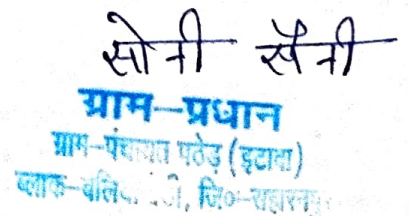 सोनी सैनी
ग्राम-प्रधान
ग्राम-पंचायत पठेड़ (इटावा)
ब्लाक- जि०-सहारनपुर